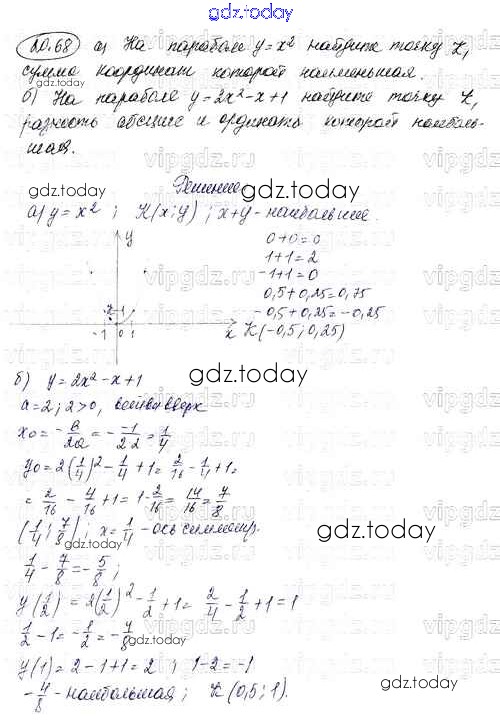 gdz.today
20.68 а) На параболе y=x² найдите точку K,
сумма координат которой наименьшая.
б) На параболе y=2x²-x+1 найдите точку K,
разность абсцисс и ординаты которой наиболь-
шая.
Решение
gdz.today
а) y=x² ; K(x;y) ; x+y-наибольшие.
y
0+0=0
1+1=2
-1+1=0
0,5+0,25=0,75
-0,5+0,25=-0,25
-1 0 1 x K(-0,5;0,25)
gdz.today
б) y=2x²-x+1
a=2; 2>0, ветви вверх
x₀=-b/2a=-(-1)/2·2=1/4
y₀=2(1/4)²-1/4+1=2/16-1/4+1=
=2/16-4/16+1=1-2/16=14/16=7/8
(1/4;7/8); x=1/4-ось симметр.
gdz.today
gdz.today
1/4-7/8=-5/8;
y(1/2)=2(1/2)²-1/2+1=2/4-1/2+1=1
1/2-1=-1/2=-4/8
gdz.today
y(1)=2-1+1=2 ; 1-2=-1
-4/8-наибольшая; K(0,5;1).
gdz.today